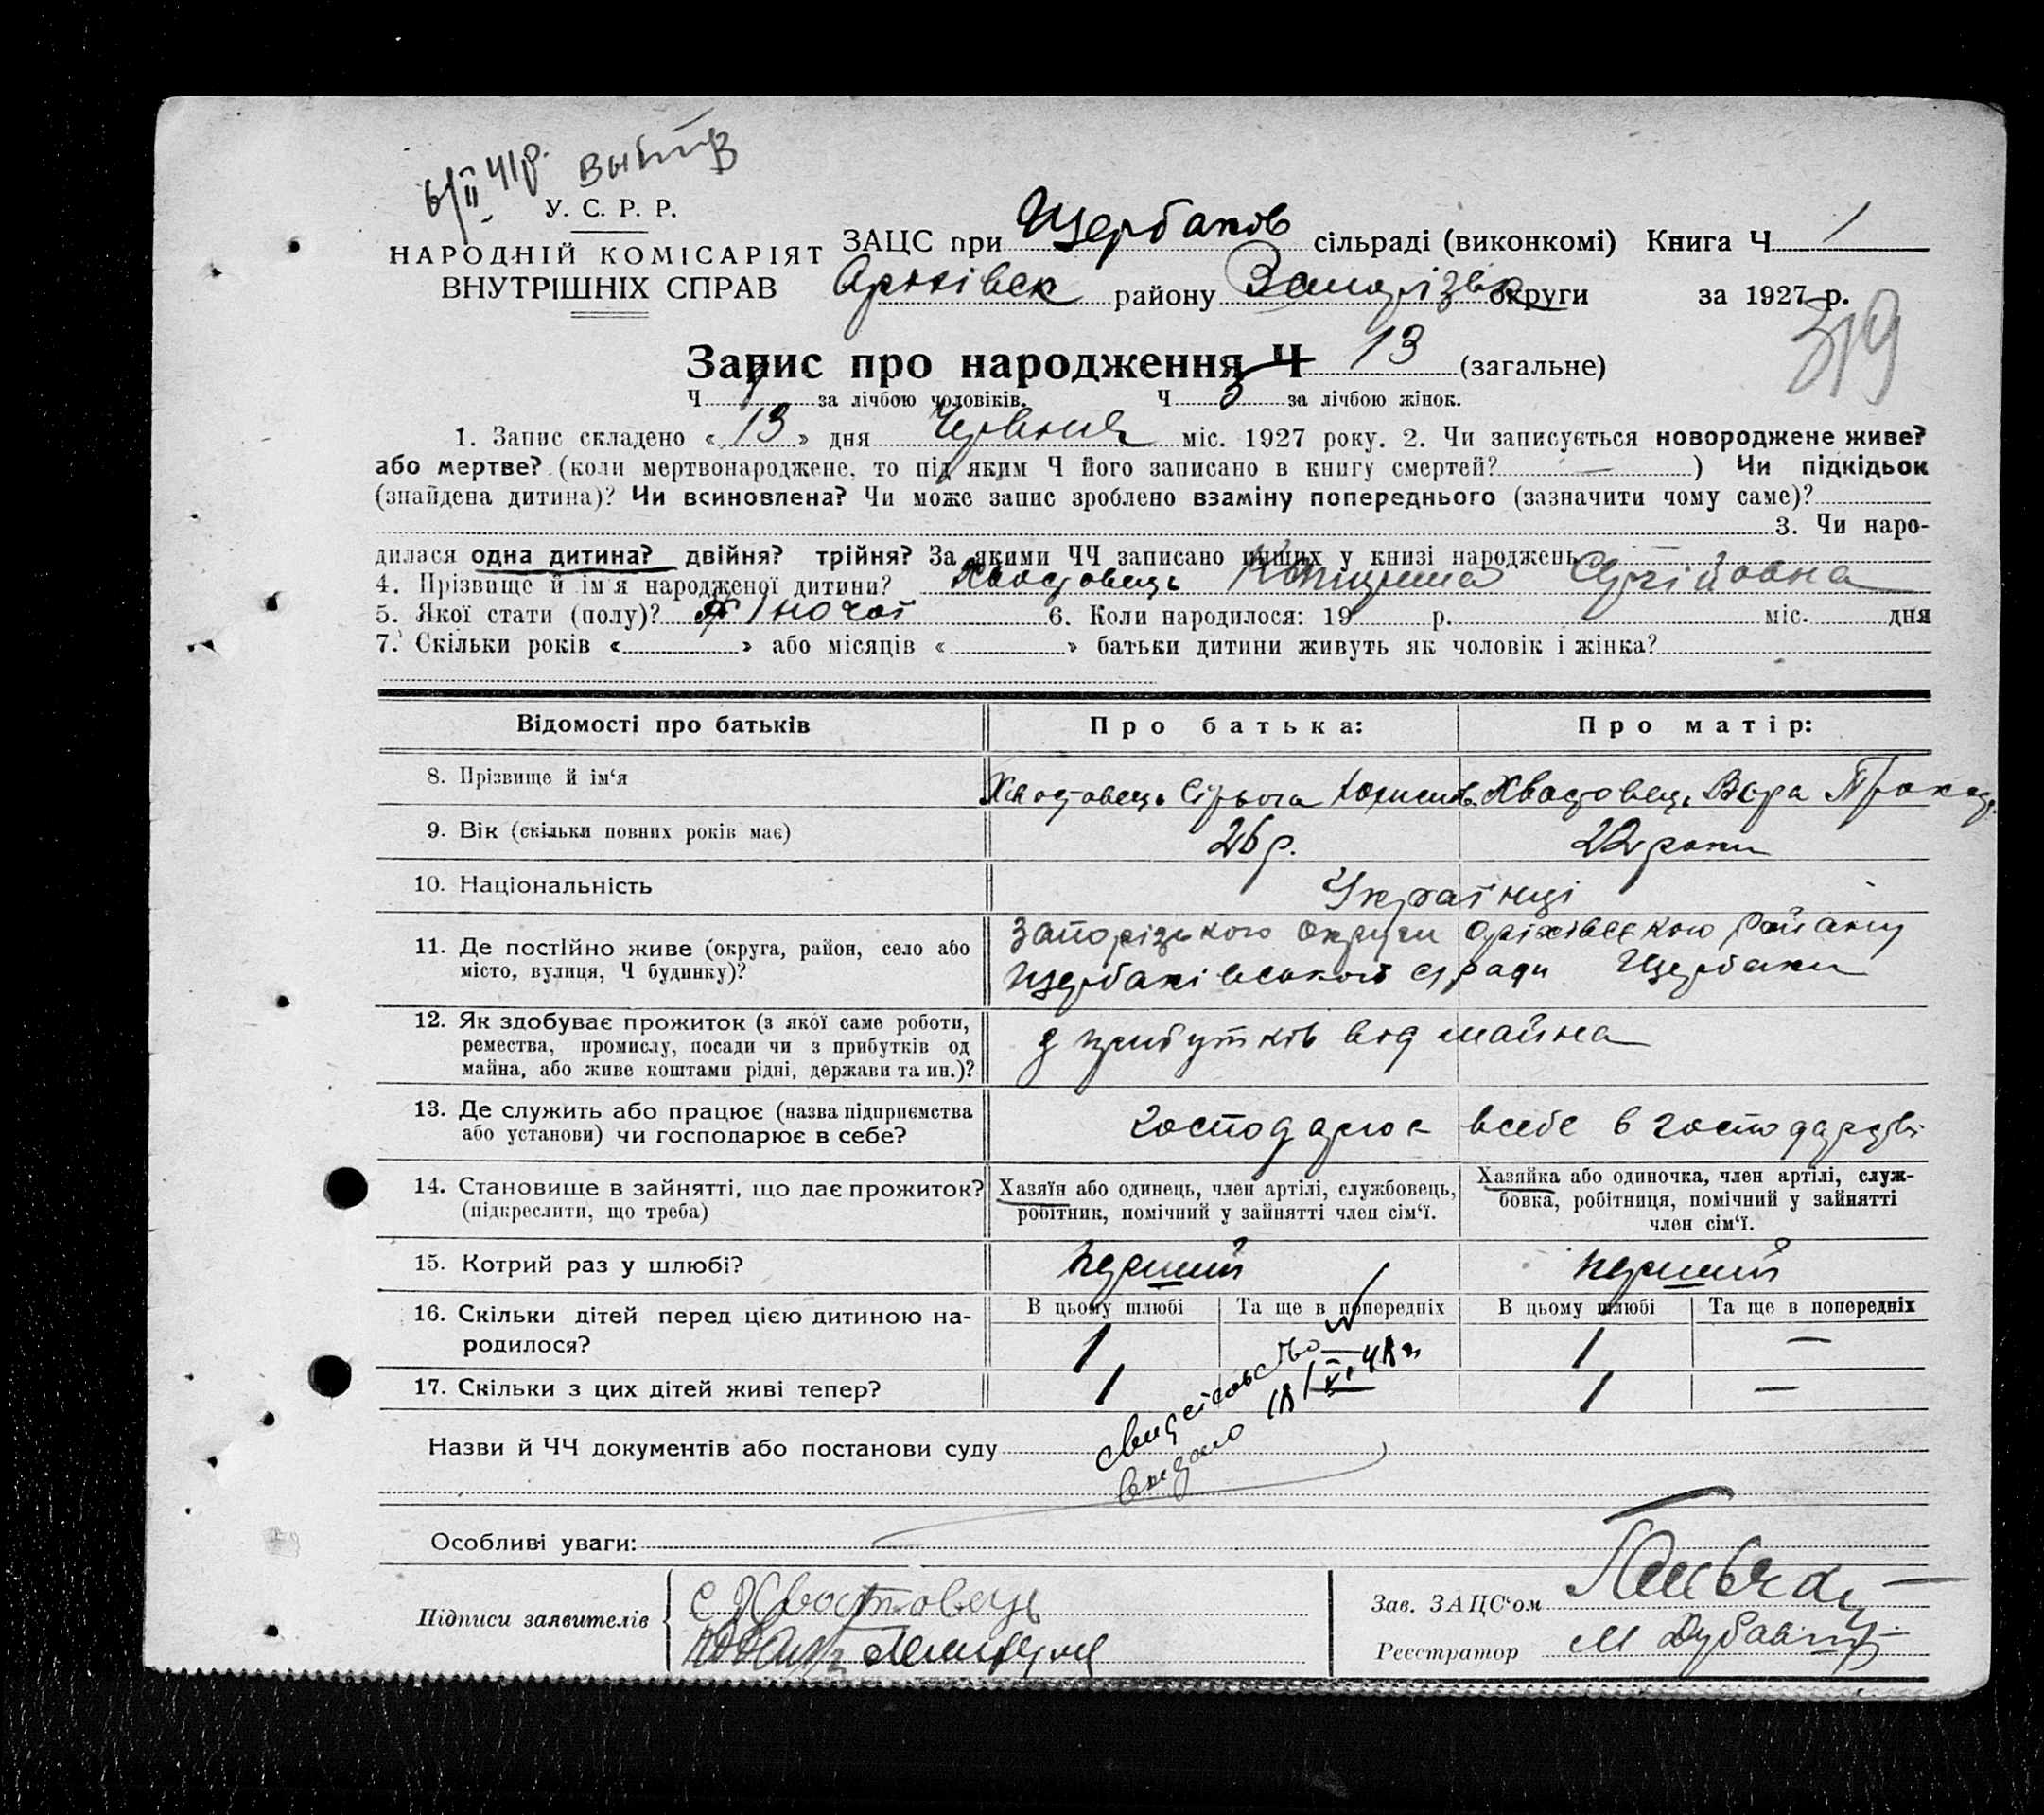 6/II 41р.
У. С. Р. Р.
НАРОДНІЙ КОМІСАРІЯТ
ВНУТРІШНІХ СПРАВ
ЗАЦС при Щербаків сільраді (виконкомі) Книга Ч 1
Оріхівськ району Запорізьк округи за 1927 р.
319
Запис про народження Ч 13 (загальне)
Ч за лічбою чоловіків. Ч 5 за лічбою жінок.
1. Запис складено « 13 » дня Червня міс. 1927 року. 2. Чи записується новороджене живе?
або мертве? (коли мертвонароджене, то під яким Ч його записано в книгу смертей? — ) Чи підкідьок
(знайдена дитина)? Чи всиновлена? Чи може запис зроблено взаміну попереднього (зазначити чому саме)?
3. Чи наро-
дилася одна дитина? двійня? трійня? За якими ЧЧ записано инших у книзі народжень —
4. Прізвище й ім'я народженої дитини? Хвостовець Сергійовна
5. Якої стати (полу)? Жіночої 6. Коли народилося: 19 р. міс. дня
7. Скільки років « » або місяців « » батьки дитини живуть як чоловік і жінка?
Відомості про батьків Про батька: Про матір:
8. Прізвище й ім'я Хвостовець Сірьога Хвостовець Вєра
9. Вік (скільки повних років має) 26 р. 22 роки
10. Національність Українці
11. Де постійно живе (округа, район, село або
місто, вулиця, Ч будинку)?
Запорізького округи Оріхівського району
Щербаківської с/ради Щербаки
12. Як здобуває прожиток (з якої саме роботи,
ремества, промислу, посади чи з прибутків од
майна, або живе коштами рідні, держави та ин.)?
з прибутків від майна
13. Де служить або працює (назва підприємства
або установи) чи господарює в себе?
господарює всебе в господарстві
14. Становище в зайнятті, що дає прожиток?
(підкреслити, що треба)
Хазяїн або одинець, член артілі, службовець,
робітник, помічний у зайнятті член сім'ї.
Хазяйка або одиночка, член артілі, служ-
бовка, робітниця, помічний у зайнятті
член сім'ї.
15. Котрий раз у шлюбі? перший перший
16. Скільки дітей перед цією дитиною на-
родилося?
В цьому шлюбі Та ще в попередніх В цьому шлюбі Та ще в попередніх
1 — 1 —
17. Скільки з цих дітей живі тепер? 1 1 —
Свидетельство
видано 18/XI 48 г
Назви й ЧЧ документів або постанови суду
Особливі уваги:
Підписи заявителів
С Хвостовець
Зав. ЗАЦС'ом
Реєстратор М